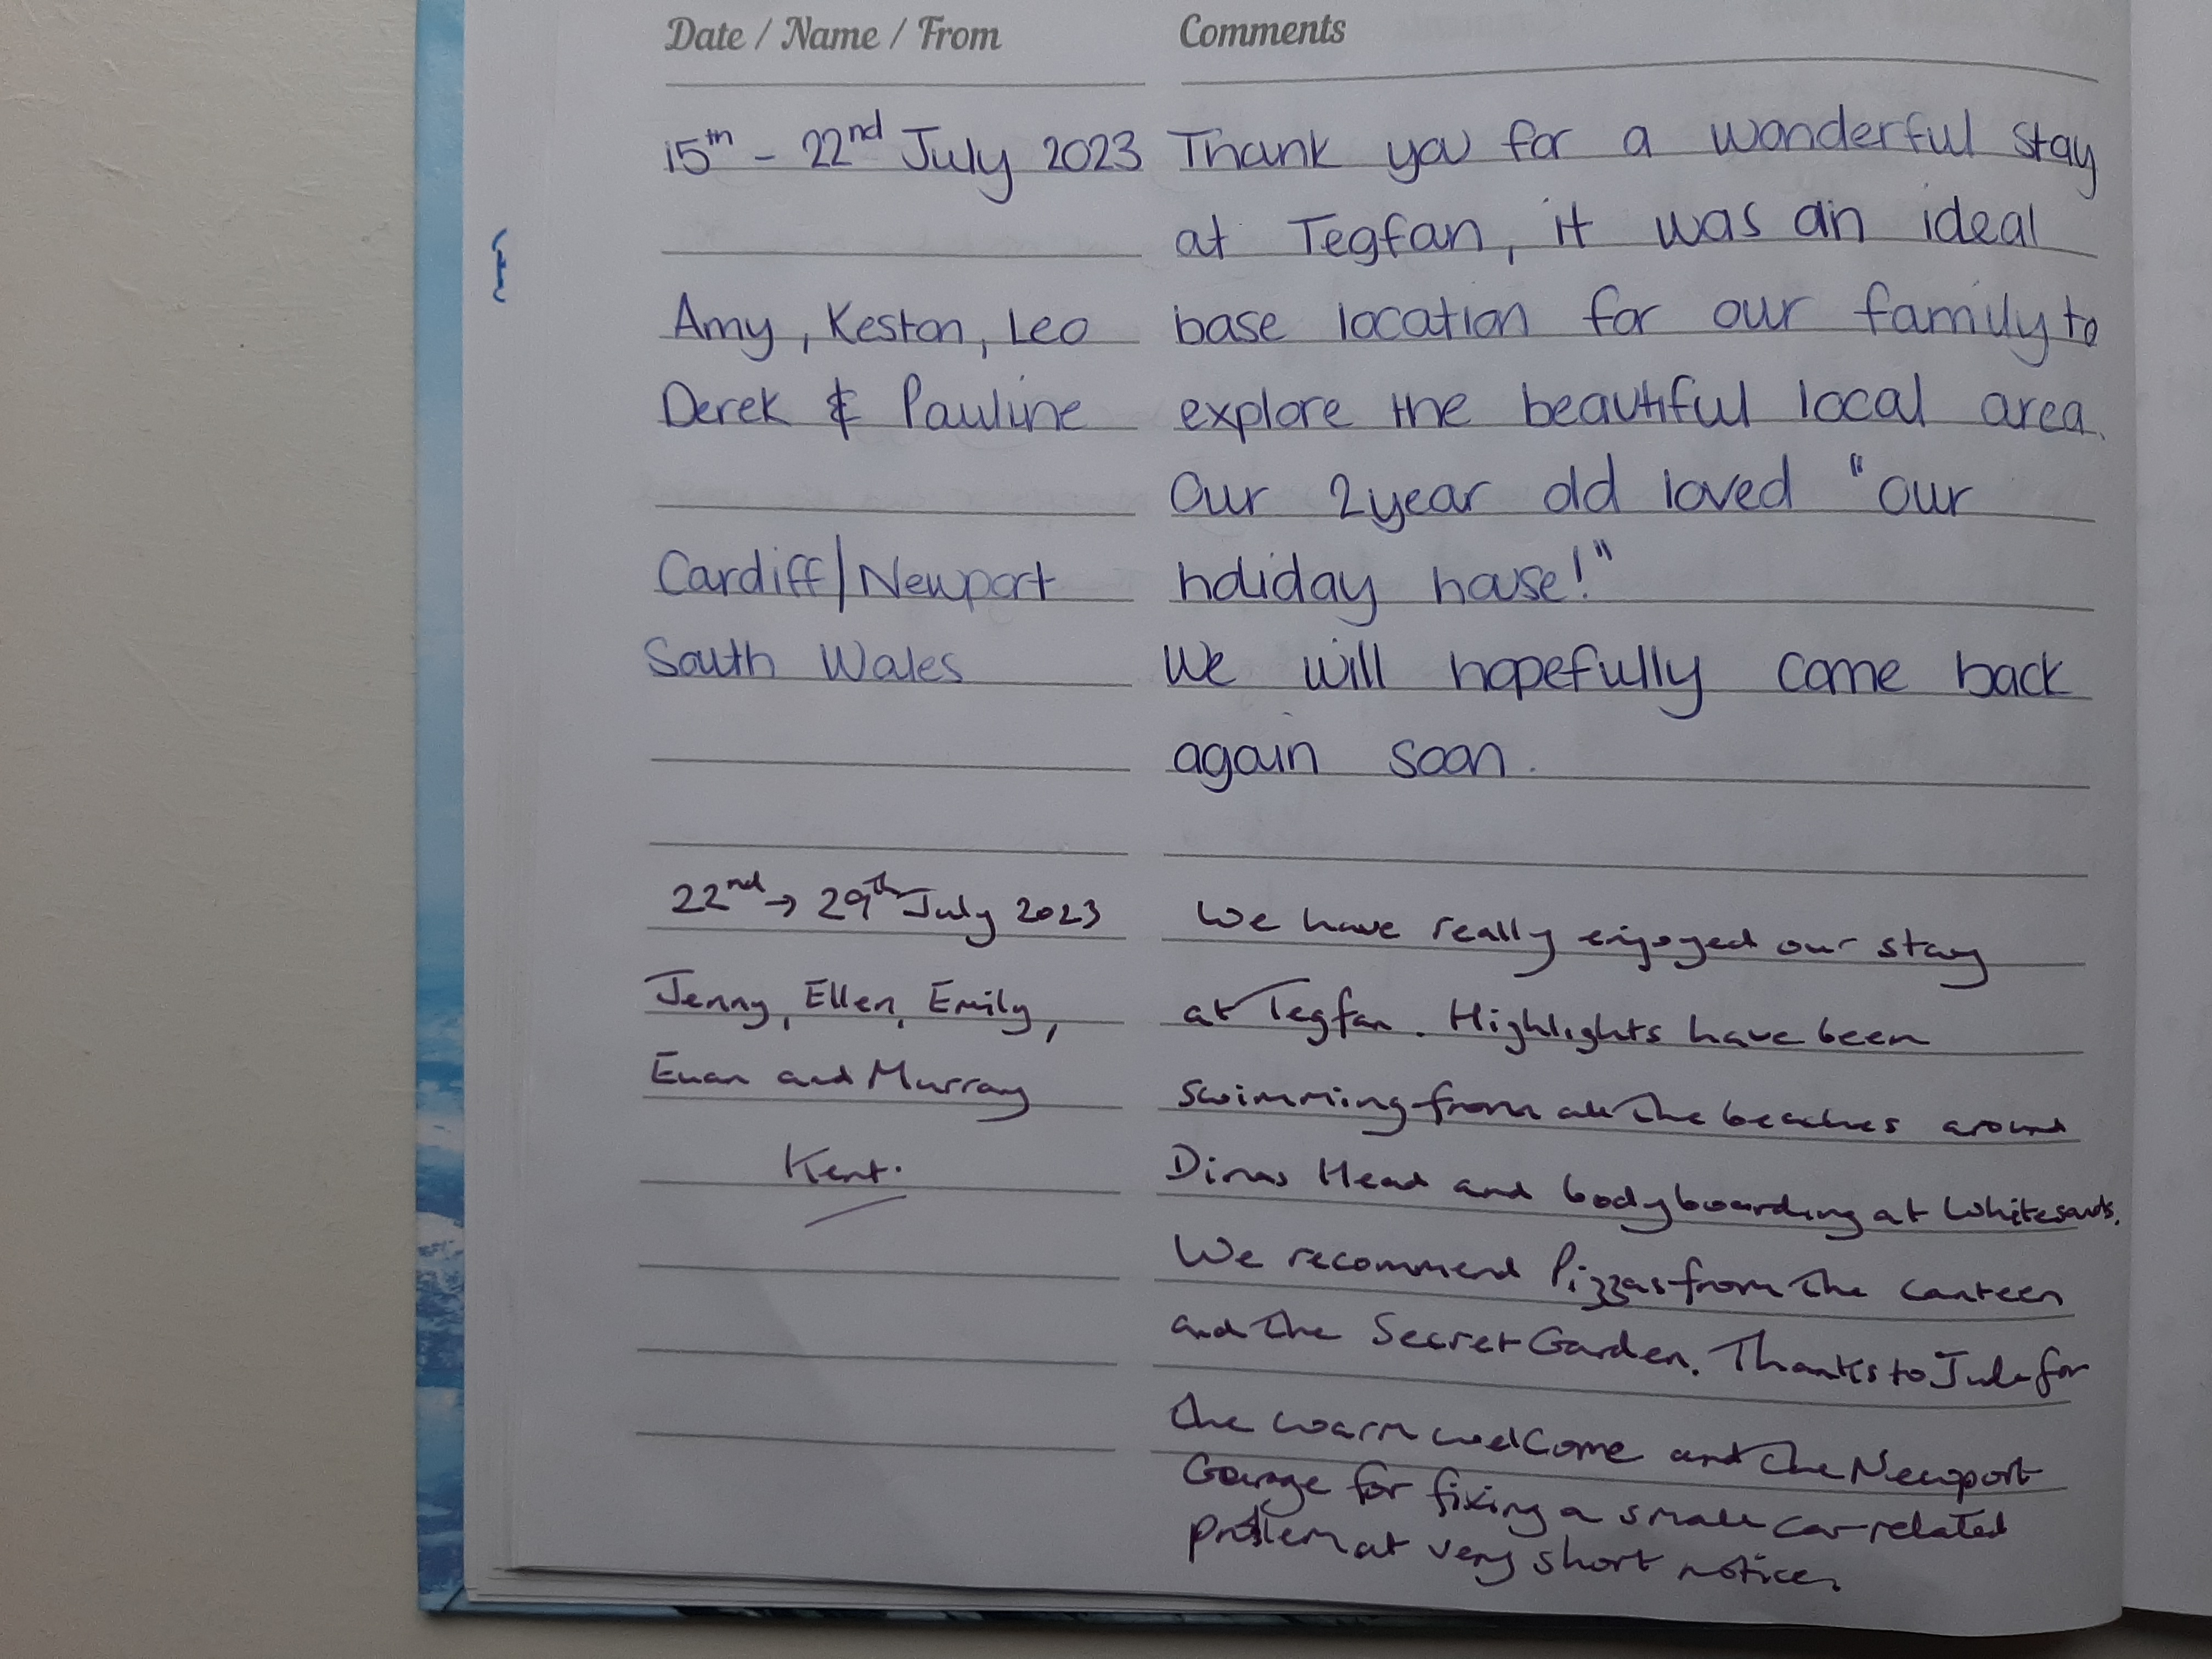 Date / Name / From
Comments
15th - 22nd July 2023
Amy, Keston, Leo
Derek & Pauline
Cardiff/Newport
South Wales
Thank you for a wonderful stay
at Tegfan, it was an ideal
base location for our family to
explore the beautiful local area.
Our 2 year old loved "our
holiday house!"
We will hopefully come back
again soon.
22nd → 29th July 2023
Jenny, Ellen, Emily,
Euan and Murray
Kent.
We have really enjoyed our stay
at Tegfan. Highlights have been
swimming from all the beaches around
Dinas Head and bodyboarding at Whitesands.
We recommend Pizzas from the Canteen
and the Secret Garden. Thanks to for
the warm welcome and the Newport
Garage for fixing a small car-related
problem at very short notice.